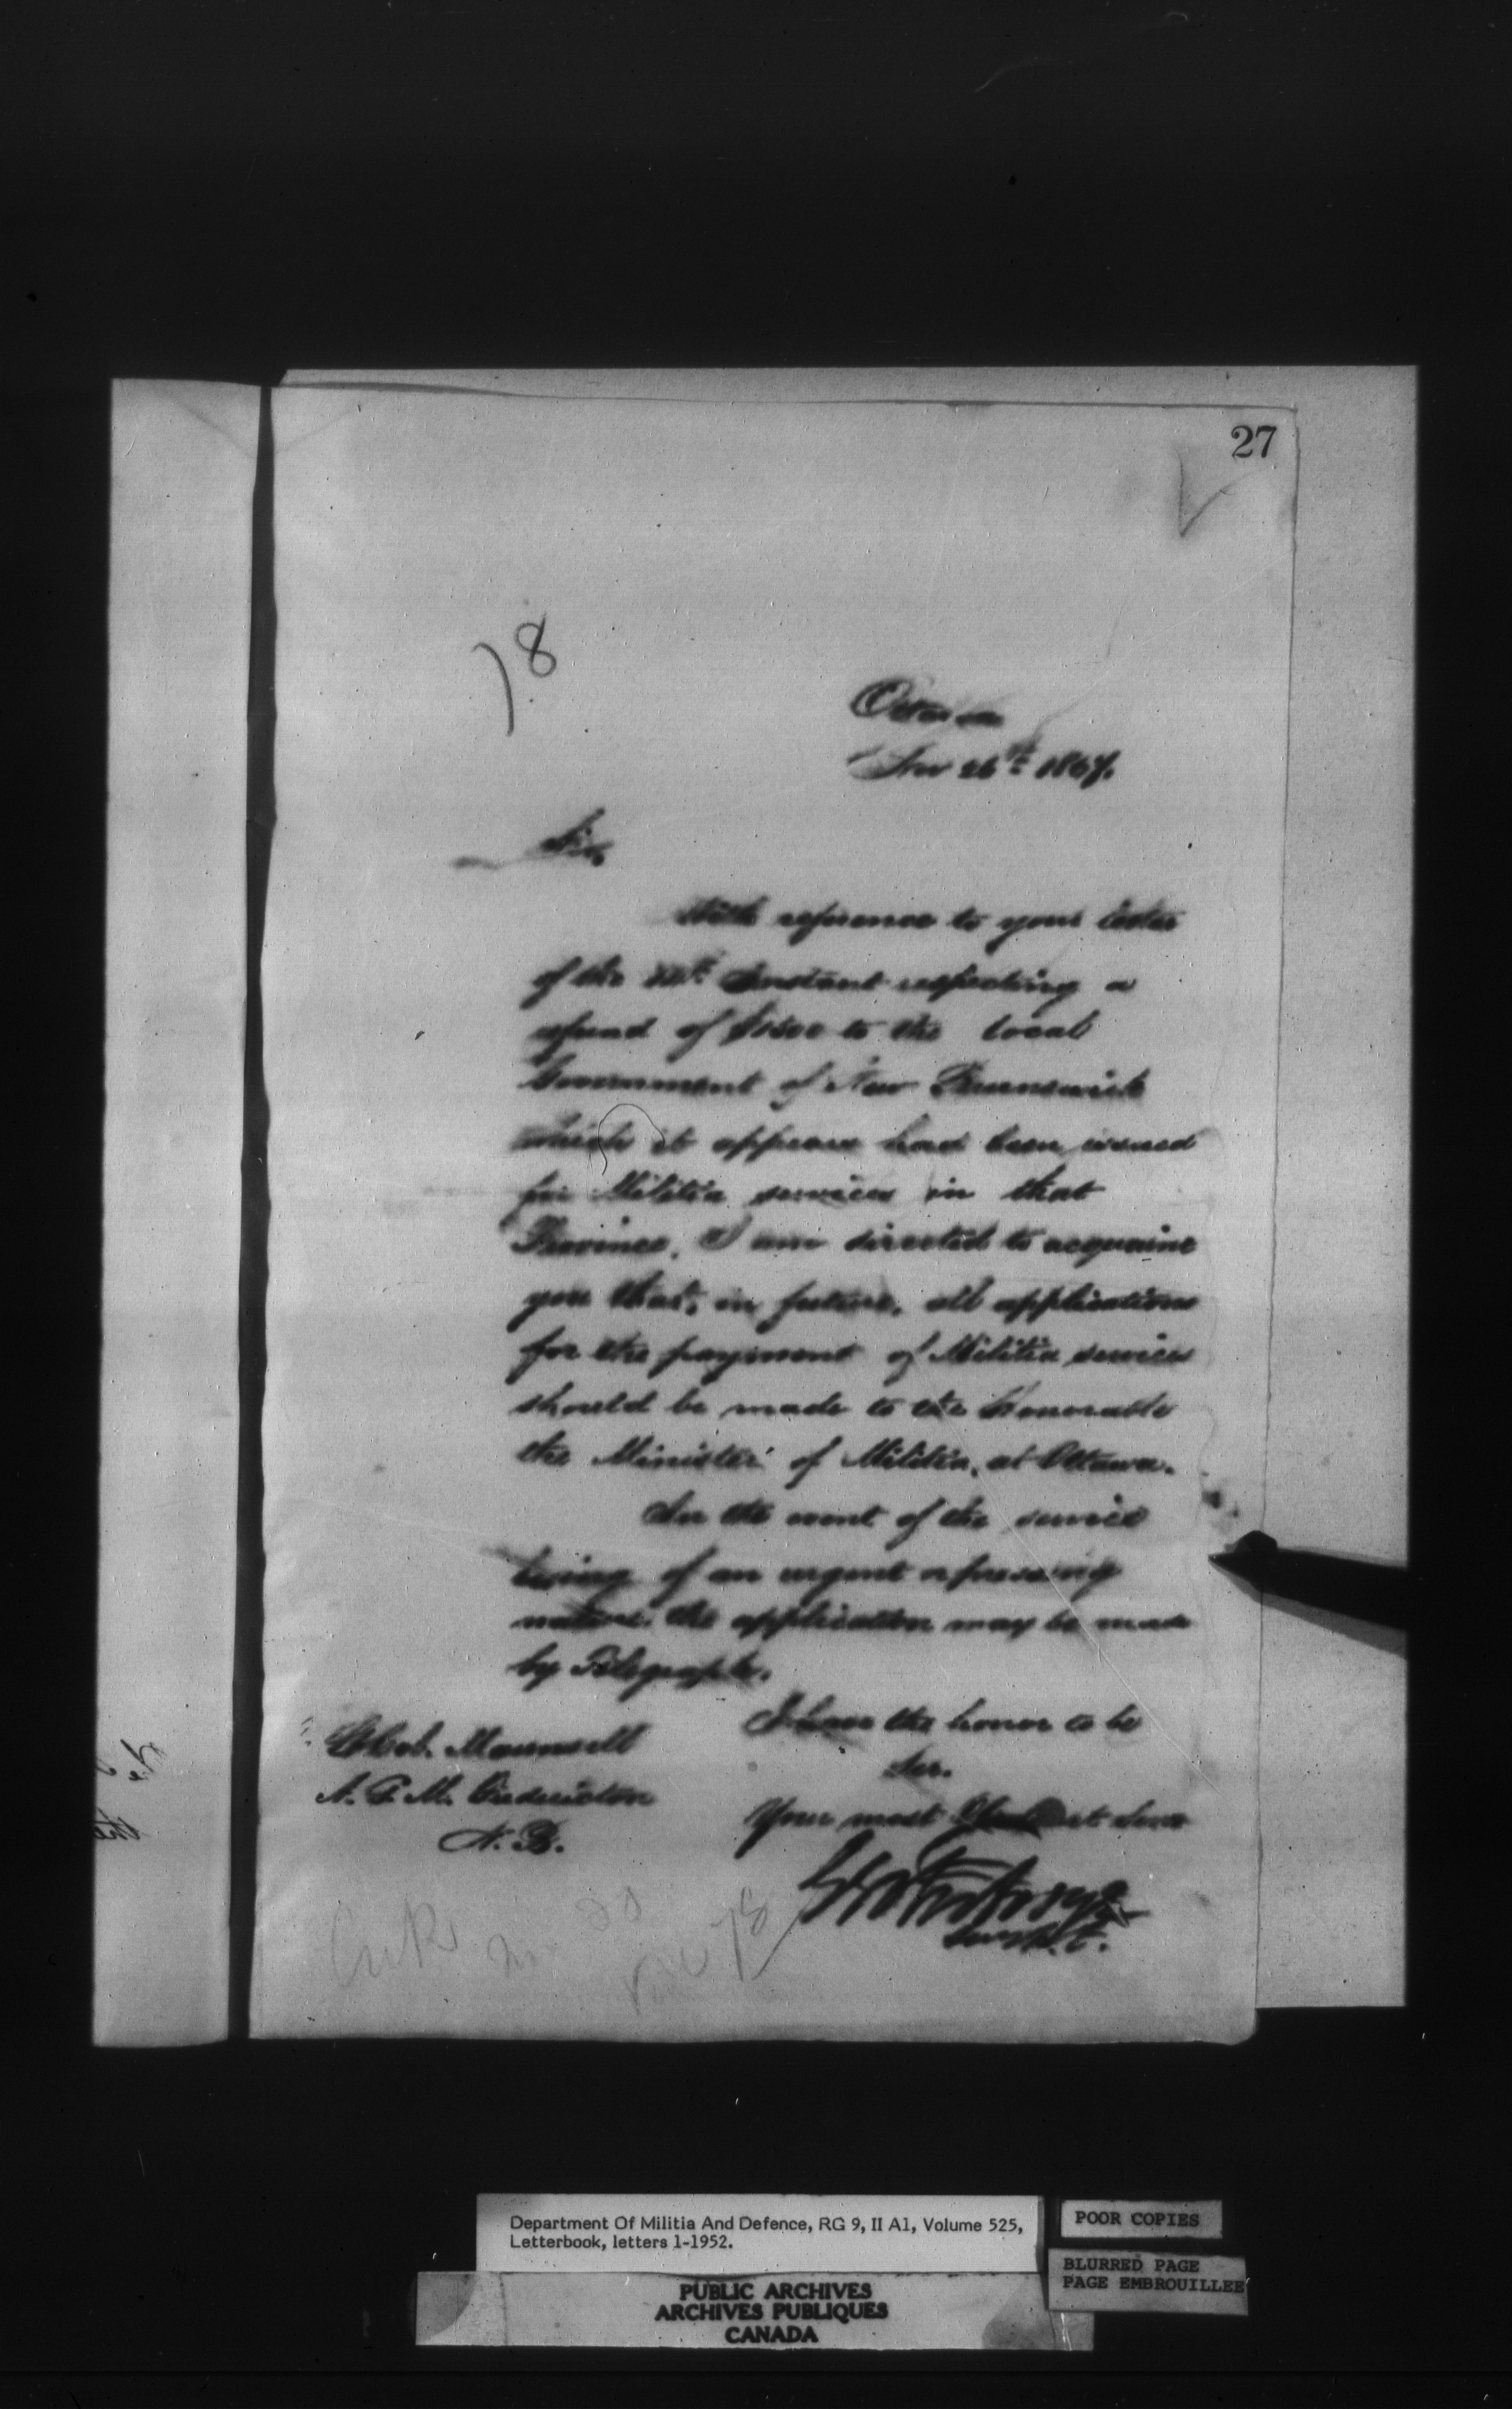 27
78
Ottawa
Nov 26th 1867.
Sir,
With reference to your letter
of the instant respecting a
refund of to the Local
Government of New Brunswick
which it appears had been issued
for Militia services in that
Province, I am directed to acquaint
you that, in future, all applications
for the payment of Militia services
should be made to the Honorable
the Minister of Militia, at Ottawa.
In the event of the service
being of an urgent or pressing
nature the application may be made
by Telegraph.
I have the honor to be
Sir.
Your most Obedient Servt
Lt Col. Maunsell
Fredericton
N. B.
Department Of Militia And Defence, RG 9, II A1, Volume 525,
Letterbook, letters 1-1952.
POOR COPIES
BLURRED PAGE
PAGE EMBROUILLEE
PUBLIC ARCHIVES
ARCHIVES PUBLIQUES
CANADA